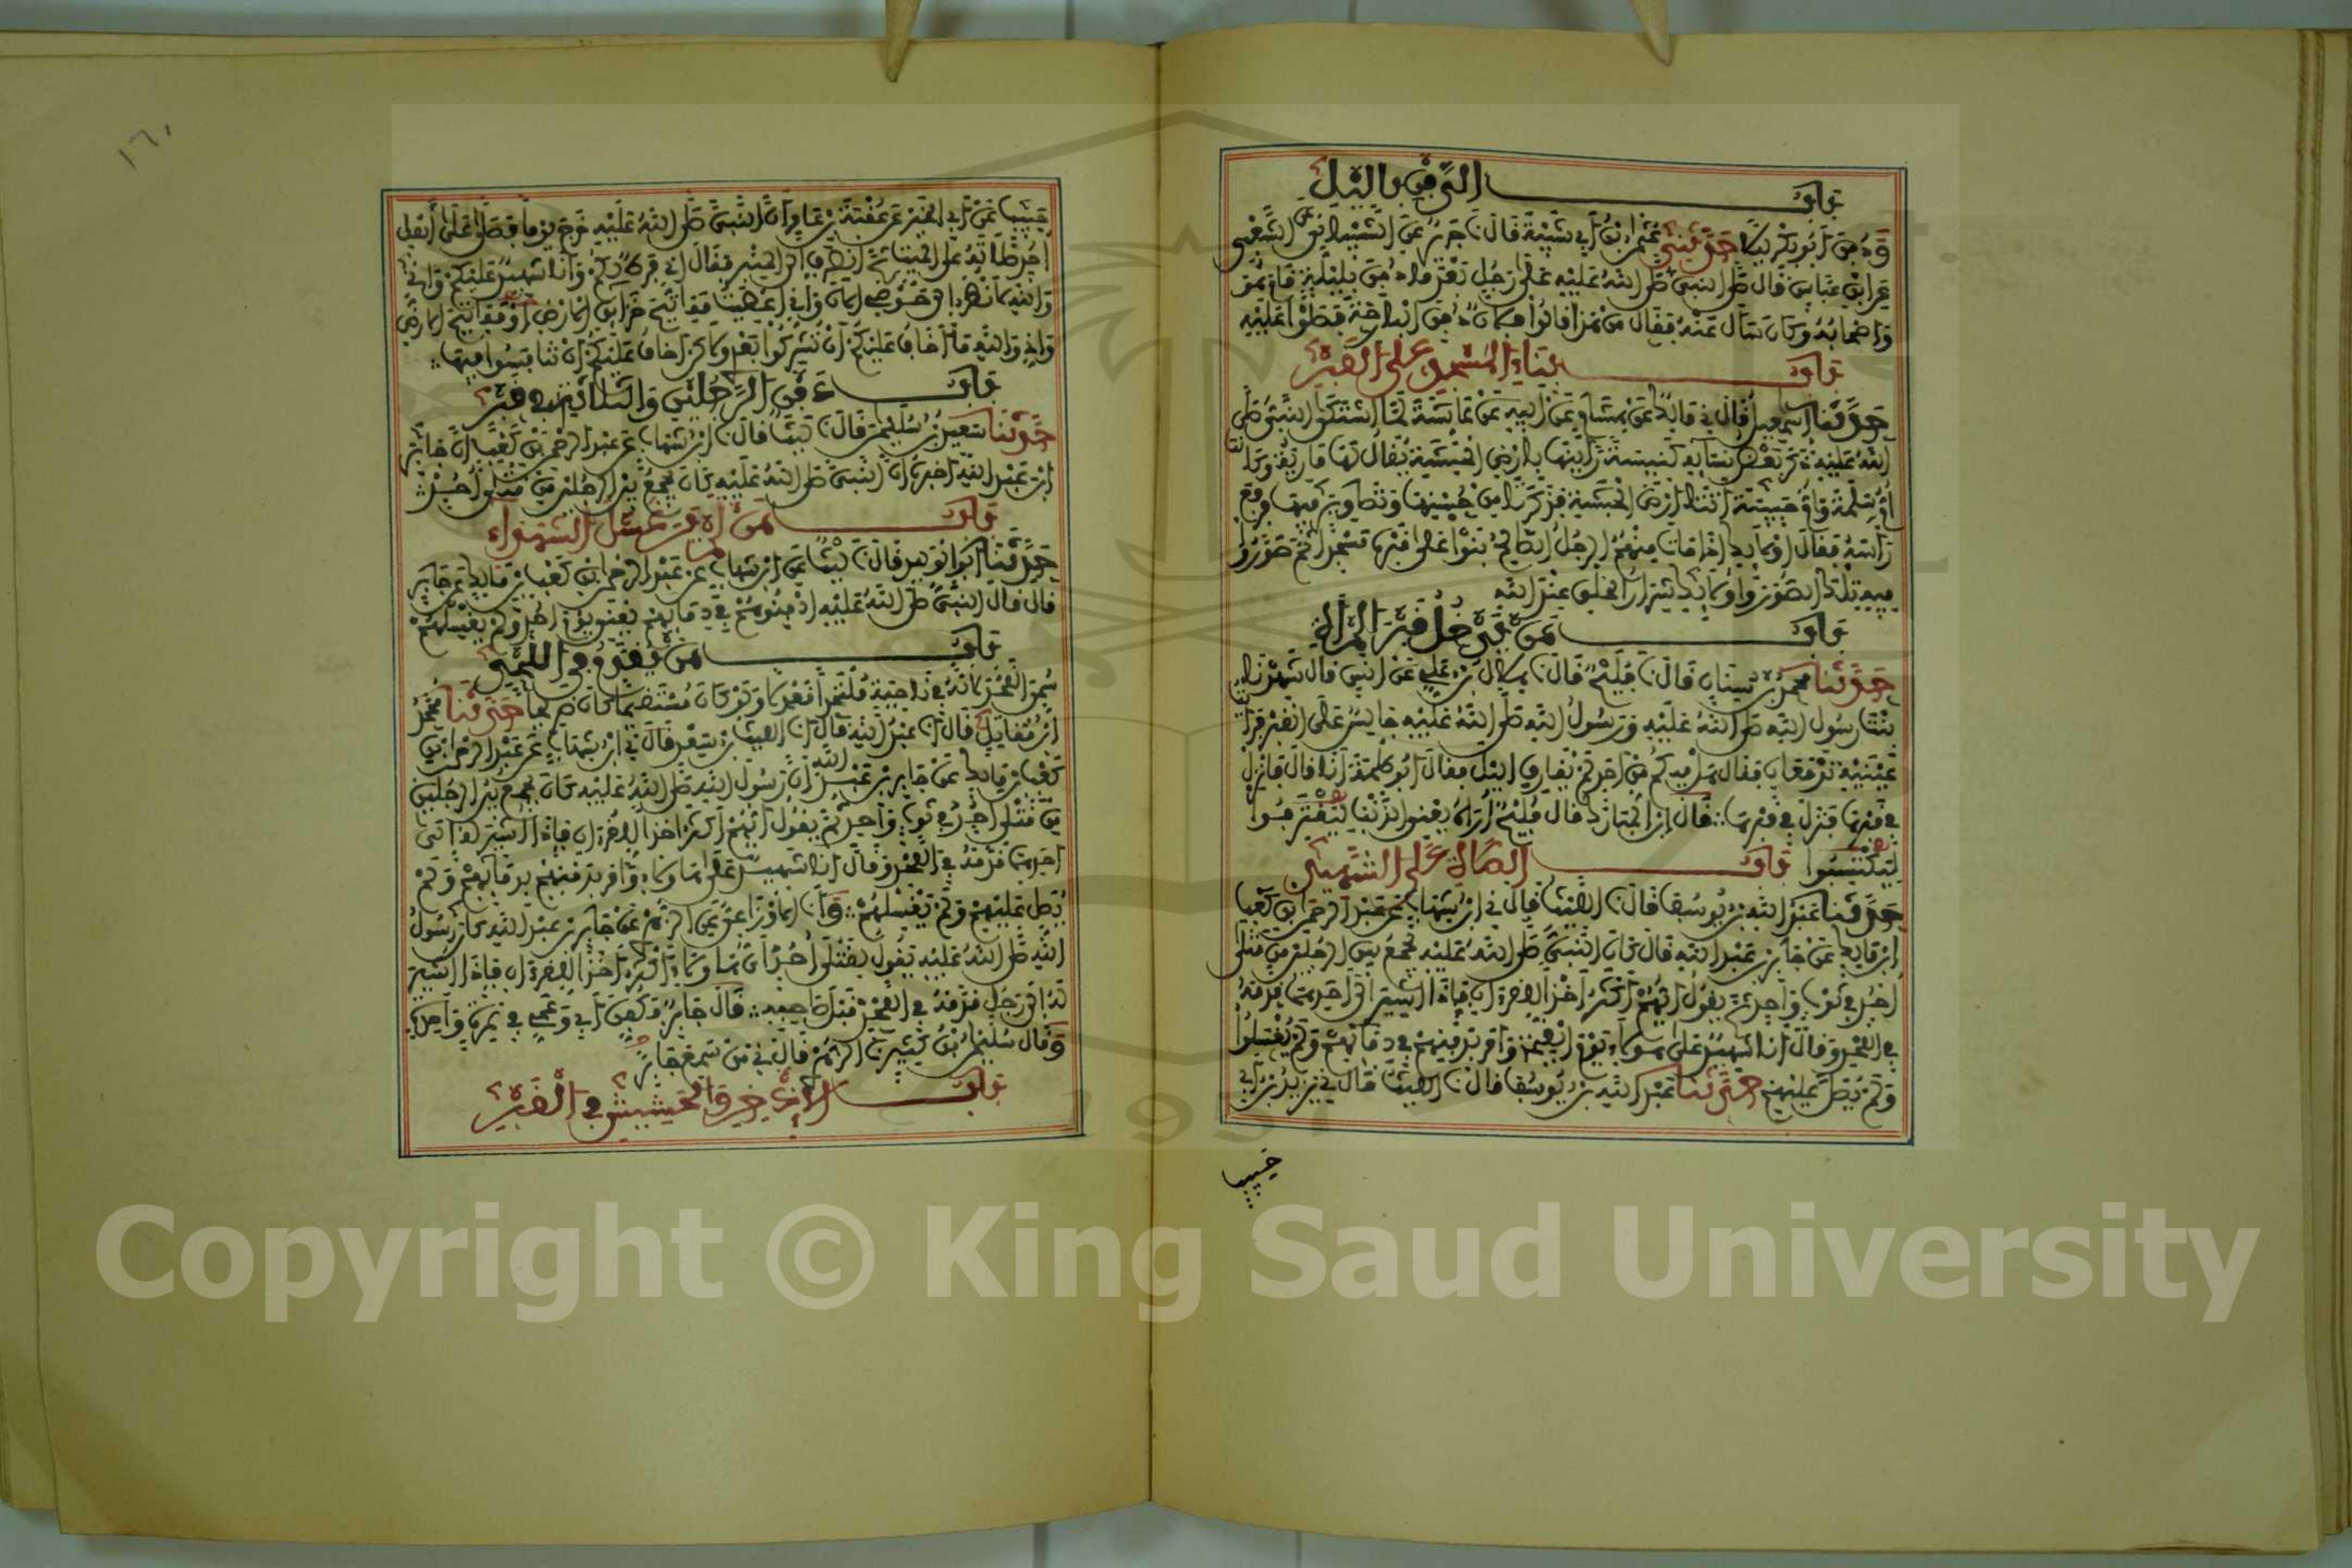 باب الدفن بالليل
ودفن أبو بكر ليلا حدثني عثمن ابن أبي شيبة قال نا جرير عن الشيباني عن الشعبي
عن ابن عباس قال صلى النبي صلى الله عليه على رجل بعد ما دفن بليلة قام هو
وأصحابه وكان سأل عنه فقال من هذا قالوا فلان دفن البارحة فصلوا عليه
باب بناء المسجد على القبر
حدثنا إسمعيل قال ني مالك عن هشام عن أبيه عن عائشة لما اشتكى النبي صلى
الله عليه ذكر بعض نسائه كنيسة رأينها بأرض الحبشة يقال لها مارية وكانت
أم سلمة وأم حبيبة أتتا أرض الحبشة فذكرتا من حسنها وتصاوير فيها فرفع
رأسه فقال أولئك إذا مات منهم الرجل الصالح بنوا على قبره مسجدا ثم صوروا
فيه تلك الصور وأولئك شرار الخلق عند الله
باب من يدخل قبر المرأة
حدثنا محمد بن سنان قال نا فليح قال نا هلال بن علي عن أنس قال شهدنا
بنت رسول الله صلى الله عليه ورسول الله صلى الله عليه جالس على القبر فرأيت
عينيه تدمعان فقال هل فيكم من أحد لم يقارف الليل فقال أبو طلحة أنا قال فانزل
في قبرها فنزل في قبرها قال ابن المبارك قال فليح أراه يعني الذنب ليقترفوا
ليكتسبوا باب الصلاة على الشهيد
حدثنا عبد الله بن يوسف قال نا الليث قال ني ابن شهاب عن عبد الرحمن بن كعب
ابن مالك عن جابر بن عبد الله قال كان النبي صلى الله عليه يجمع بين الرجلين من قتلى
أحد في ثوب واحد ثم يقول أيهم أكثر أخذا للقرءان فإذا أشير إلى أحدهما قدمه
في اللحد وقال أنا شهيد على هؤلاء يوم القيمة وأمر بدفنهم في دمائهم ولم يغسلوا
ولم يصل عليهم حدثنا عبد الله بن يوسف قال نا الليث قال ني يزيد بن أبي
حبيب
١٦٠
حبيب عن أبي الخير عن عقبة بن عامر أن النبي صلى الله عليه خرج يوما فصلى على أهل
أحد صلاته على الميت ثم انصرف إلى المنبر فقال إني فرط لكم وأنا شهيد عليكم وإني
والله لأنظر إلى حوضي الآن وإني أعطيت مفاتيح خزائن الأرض أو مفاتيح الأرض
وإني والله ما أخاف عليكم أن تشركوا بعدي ولكن أخاف عليكم أن تنافسوا فيها
باب دفن الرجلين والثلاثة في قبر
حدثنا سعيد بن سليمن قال نا ليث قال نا ابن شهاب عن عبد الرحمن بن كعب أن جابر
ابن عبد الله أخبره أن النبي صلى الله عليه كان يجمع بين الرجلين من قتلى أحد
باب من لم ير غسل الشهداء
حدثنا أبو الوليد قال نا ليث عن ابن شهاب عن عبد الرحمن بن كعب بن مالك عن جابر
قال قال النبي صلى الله عليه ادفنوهم في دمائهم يعني يوم أحد ولم يغسلهم
باب من يقدم في اللحد
سمي اللحد لأنه في ناحية ملتحدا معدلا ولو كان مستقيما كان ضريحا حدثنا محمد
ابن مقاتل قال أنا عبد الله قال أنا الليث بن سعد قال ني ابن شهاب عن عبد الرحمن بن
كعب بن مالك عن جابر بن عبد الله أن رسول الله صلى الله عليه كان يجمع بين الرجلين
من قتلى أحد في ثوب واحد ثم يقول أيهم أكثر أخذا للقرءان فإذا أشير له إلى
أحدهما قدمه في اللحد وقال أنا شهيد على هؤلاء وأمر بدفنهم بدمائهم ولم
يصل عليهم ولم يغسلهم وأنا الأوزاعي عن الزهري عن جابر بن عبد الله كان رسول
الله صلى الله عليه يقول لقتلى أحد أي هؤلاء أكثر أخذا للقرءان فإذا أشير
له إلى رجل قدمه في اللحد قبل صاحبه قال جابر فكفن أبي وعمي في نمرة واحدة
وقال سليمان بن كثير نا الزهري قال ني من سمع جابرا
باب الإذخر والحشيش في القبر
Copyright © King Saud University
1957